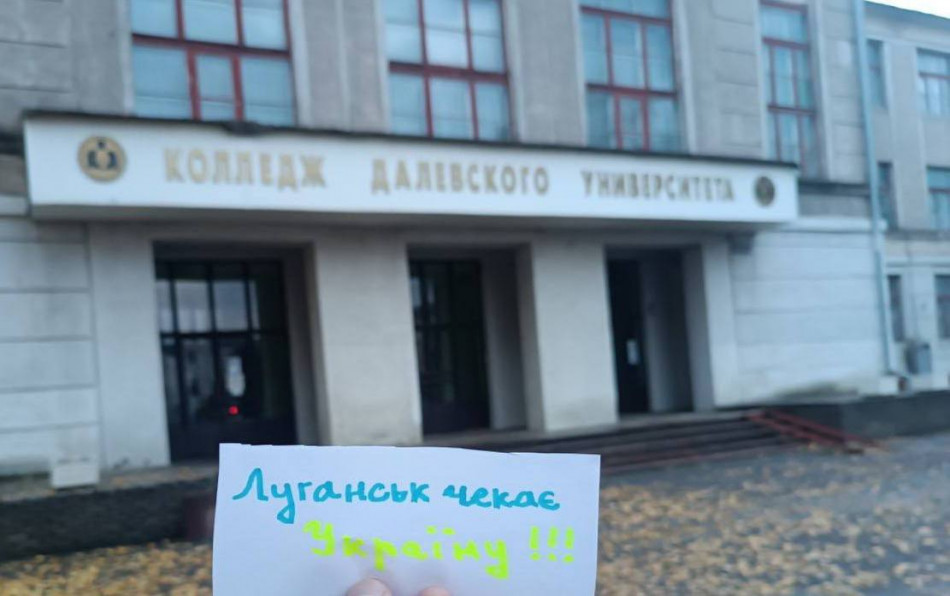 КОЛЛЕДЖ ДАЛЕВСКОГО УНИВЕРСИТЕТА
Луганськ чекає
Україну !!!